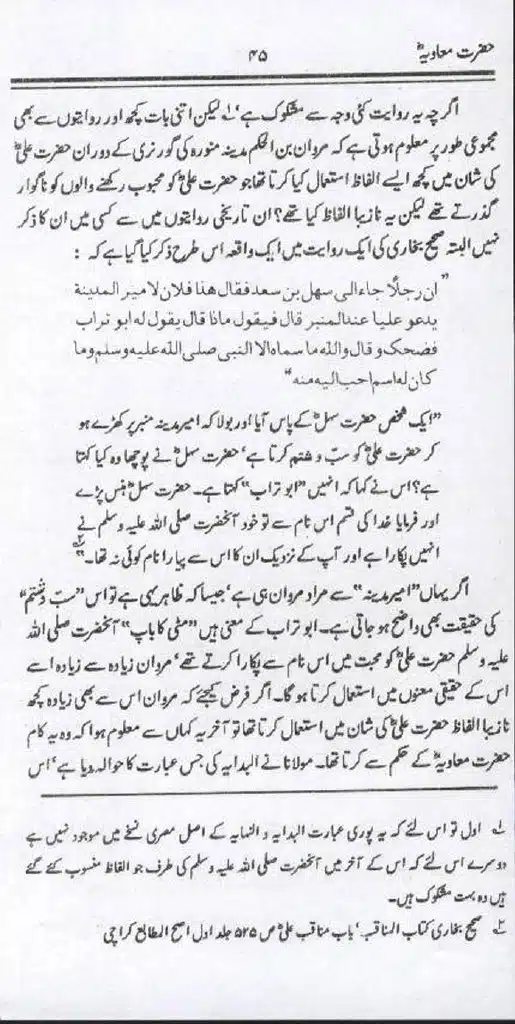 حضرت معاویہؓ
۴۵
اگرچہ یہ روایت کئی وجہ سے مشکوک ہے‘ ۱؎ لیکن اتنی بات کچھ اور روایتوں سے بھی
مجموعی طور پر معلوم ہوتی ہے کہ مروان بن الحکم مدینہ منورہ کی گورنری کے دوران حضرت علیؓ
کی شان میں کچھ ایسے الفاظ استعمال کیا کرتا تھا جو حضرت علیؓ کو محبوب رکھنے والوں کو ناگوار
گذرتے تھے لیکن یہ نازیبا الفاظ کیا تھے؟ ان تاریخی روایتوں میں سے کسی میں ان کا ذکر
نہیں البتہ صحیح بخاری کی ایک روایت میں ایک واقعہ اس طرح ذکر کیا گیا ہے کہ :
”ان رجلًا جاء الی سهل بن سعد فقال هذا فلان لامیر المدینة
یدعو علیا عند المنبر قال فیقول ماذا قال یقول له ابو تراب
فضحک و قال والله ما سماه الا النبی صلی الله علیه وسلم وما
کان له اسم احب الیه منه“
”ایک شخص حضرت سہلؓ کے پاس آیا اور بولا کہ امیر مدینہ منبر پر کھڑے ہو
کر حضرت علیؓ کو سبّ و شتم کرتا ہے‘ حضرت سہلؓ نے پوچھا وہ کیا کہتا
ہے؟ اس نے کہا کہ انہیں ”ابو تراب“ کہتا ہے۔ حضرت سہلؓ ہنس پڑے
اور فرمایا خدا کی قسم اس نام سے تو خود آنحضرت صلی اللہ علیہ وسلم نے
انہیں پکارا ہے اور آپ کے نزدیک ان کا اس سے پیارا نام کوئی نہ تھا۔“ ۲؎
اگر یہاں ”امیر مدینہ“ سے مراد مروان ہی ہے‘ جیسا کہ ظاہر یہی ہے تو اس ”سبّ و شتم“
کی حقیقت بھی واضح ہو جاتی ہے۔ ابو تراب کے معنی ہیں ”مٹی کا باپ“ آنحضرت صلی اللہ
علیہ وسلم حضرت علیؓ کو محبت میں اس نام سے پکارا کرتے تھے‘ مروان زیادہ سے زیادہ اسے
اس کے حقیقی معنوں میں استعمال کرتا ہو گا۔ اگر فرض کیجئے کہ مروان اس سے بھی زیادہ کچھ
نازیبا الفاظ حضرت علیؓ کی شان میں استعمال کرتا تھا تو آخر یہ کہاں سے معلوم ہوا کہ وہ یہ کام
حضرت معاویہؓ کے حکم سے کرتا تھا۔ مولانا نے البدایہ کی جس عبارت کا حوالہ دیا ہے‘ اس
۱؎ اول تو اس لئے کہ یہ پوری عبارت البدایہ و النہایہ کے اصل مصری نسخے میں موجود نہیں ہے
دوسرے اس لئے کہ اس کے آخر میں آنحضرت صلی اللہ علیہ وسلم کی طرف جو الفاظ منسوب کئے گئے
ہیں وہ بہت مشکوک ہیں۔
۲؎ صحیح بخاری کتاب المناقب‘ باب مناقب علیؓ ص ۵۲۵ جلد اول اصح المطابع کراچی